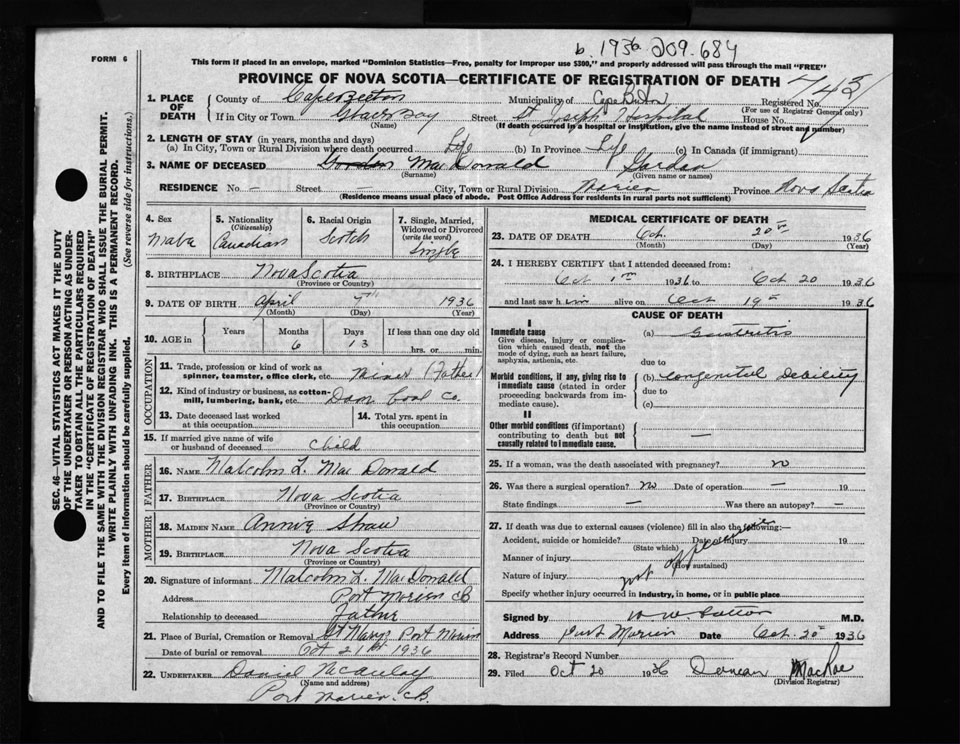 b. 1936 209.684
FORM 6
This form if placed in an envelope, marked "Dominion Statistics—Free, penalty for improper use $300," and properly addressed will pass through the mail "FREE"
PROVINCE OF NOVA SCOTIA—CERTIFICATE OF REGISTRATION OF DEATH
743
1. PLACE OF DEATH
County of Cape Breton Municipality of Cape Breton Registered No.
(For use of Registrar General only)
If in City or Town Glace Bay Street St Joseph Hospital House No.
(Name) (If death occurred in a hospital or institution, give the name instead of street and number)
2. LENGTH OF STAY (in years, months and days)
(a) In City, Town or Rural Division where death occurred Life (b) In Province Life (c) In Canada (if immigrant)
3. NAME OF DECEASED Gordon MacDonald Gordon
(Surname) (Given name or names)
RESIDENCE No. – Street – City, Town or Rural Division Morien Province Nova Scotia
(Residence means usual place of abode. Post Office Address for residents in rural parts not sufficient)
4. Sex
Male
5. Nationality
(Citizenship)
Canadian
6. Racial Origin
Scotch
7. Single, Married, Widowed or Divorced
(write the word)
Single
8. BIRTHPLACE Nova Scotia
(Province or Country)
9. DATE OF BIRTH April 7th 1936
(Month) (Day) (Year)
10. AGE in
Years Months Days If less than one day old
6 13 hrs. or min.
OCCUPATION
11. Trade, profession or kind of work as
spinner, teamster, office clerk, etc. Miner (Father)
12. Kind of industry or business, as cotton-
mill, lumbering, bank, etc. Dom Coal Co.
13. Date deceased last worked
at this occupation
14. Total yrs. spent in
this occupation
15. If married give name of wife
or husband of deceased child
FATHER
16. NAME Malcolm L. Mac Donald
17. BIRTHPLACE Nova Scotia
(Province or Country)
MOTHER
18. MAIDEN NAME Annie Shaw
19. BIRTHPLACE Nova Scotia
(Province or Country)
20. Signature of informant Malcolm L. MacDonald
Address Port Morien CB
Relationship to deceased Father
21. Place of Burial, Cremation or Removal St Marys Port Morien
Date of burial or removal Oct 21st 1936
22. UNDERTAKER Daniel McAulay
(Name and address)
Port Morien. CB.
MEDICAL CERTIFICATE OF DEATH
23. DATE OF DEATH Oct. 20th 1936
(Month) (Day) (Year)
24. I HEREBY CERTIFY that I attended deceased from:
Oct 1st 1936 to Oct 20 1936
and last saw him alive on Oct 19th 1936
CAUSE OF DEATH
I
Immediate cause (a) Gastritis
Give disease, injury or complica-
tion which caused death, not the
mode of dying, such as heart failure,
asphyxia, asthenia, etc.
due to
Morbid conditions, if any, giving rise to
immediate cause (stated in order
proceeding backwards from im-
mediate cause).
(b) Congenital Debility
due to
(c)
II
Other morbid conditions (if important)
contributing to death but not
causally related to immediate cause. —
25. If a woman, was the death associated with pregnancy? no
26. Was there a surgical operation? No Date of operation – 19
State findings – Was there an autopsy? –
27. If death was due to external causes (violence) fill in also the following:—
Accident, suicide or homicide? Date of injury 19
(State which)
Manner of injury
(How sustained)
Nature of injury
not applicable
Specify whether injury occurred in industry, in home, or in public place
Signed by M.D.
Address Port Morien Date Oct. 20th 1936
28. Registrar's Record Number
29. Filed Oct 20 1936 Duncan MacRae
(Division Registrar)
SEC. 46—VITAL STATISTICS ACT MAKES IT THE DUTY
OF THE UNDERTAKER OR PERSON ACTING AS UNDER-
TAKER TO OBTAIN ALL THE PARTICULARS REQUIRED
IN THE "CERTIFICATE OF REGISTRATION OF DEATH"
AND TO FILE THE SAME WITH THE DIVISION REGISTRAR WHO SHALL ISSUE THE BURIAL PERMIT.
WRITE PLAINLY WITH UNFADING INK. THIS IS A PERMANENT RECORD.
Every item of information should be carefully supplied. (See reverse side for instructions.)